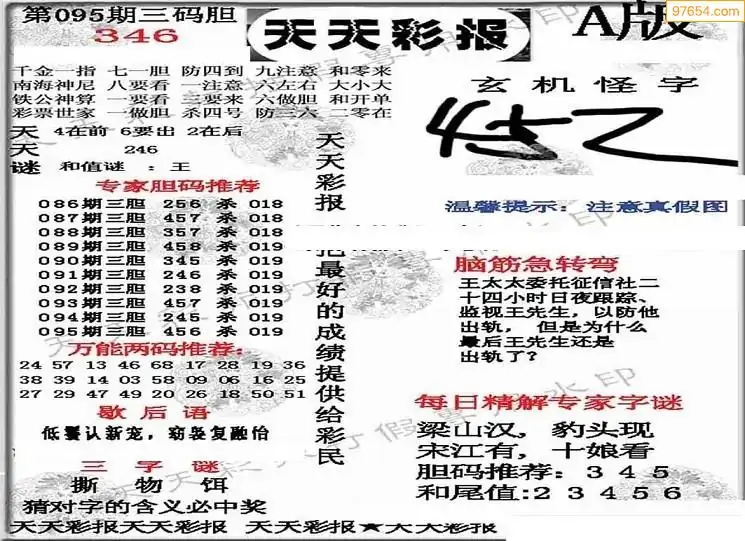 第095期三码胆
346
天天彩报
A版
97654.com
千金一指 七一胆 防四到 九注意 和零来
南海神尼 八要看 一注意 六左右 大小大
铁公神算 一要看 三要来 六做胆 和开单
彩票世家 一做胆 杀四号 防三六 二零在
天 4在前 6要出 2在后
天 246
谜 和值谜 : 王
专家胆码推荐
086期三胆 256 杀 018
087期三胆 457 杀 018
088期三胆 357 杀 018
089期三胆 458 杀 019
090期三胆 345 杀 019
091期三胆 246 杀 019
092期三胆 238 杀 019
093期三胆 457 杀 019
094期三胆 245 杀 019
095期三胆 456 杀 019
万能两码推荐:
24 57 13 46 68 17 28 19 36
38 39 14 03 58 09 06 16 25
27 29 47 49 20 26 18 50 51
歇后语
三字谜
撕 物 饵
猜对字的含义必中奖
天天彩报
把最好的成绩提供给彩民
玄机怪字
温馨提示: 注意真假图
脑筋急转弯
王太太委托征信社二
十四小时日夜跟踪、
监视王先生，以防他
出轨， 但是为什么
最后王先生还是
出轨了?
每日精解专家字谜
梁山汉，豹头现
宋江有，十娘看
胆码推荐: 3 4 5
和尾值: 2 3 4 5 6
天天彩报天天彩报 天天彩报★天天彩报